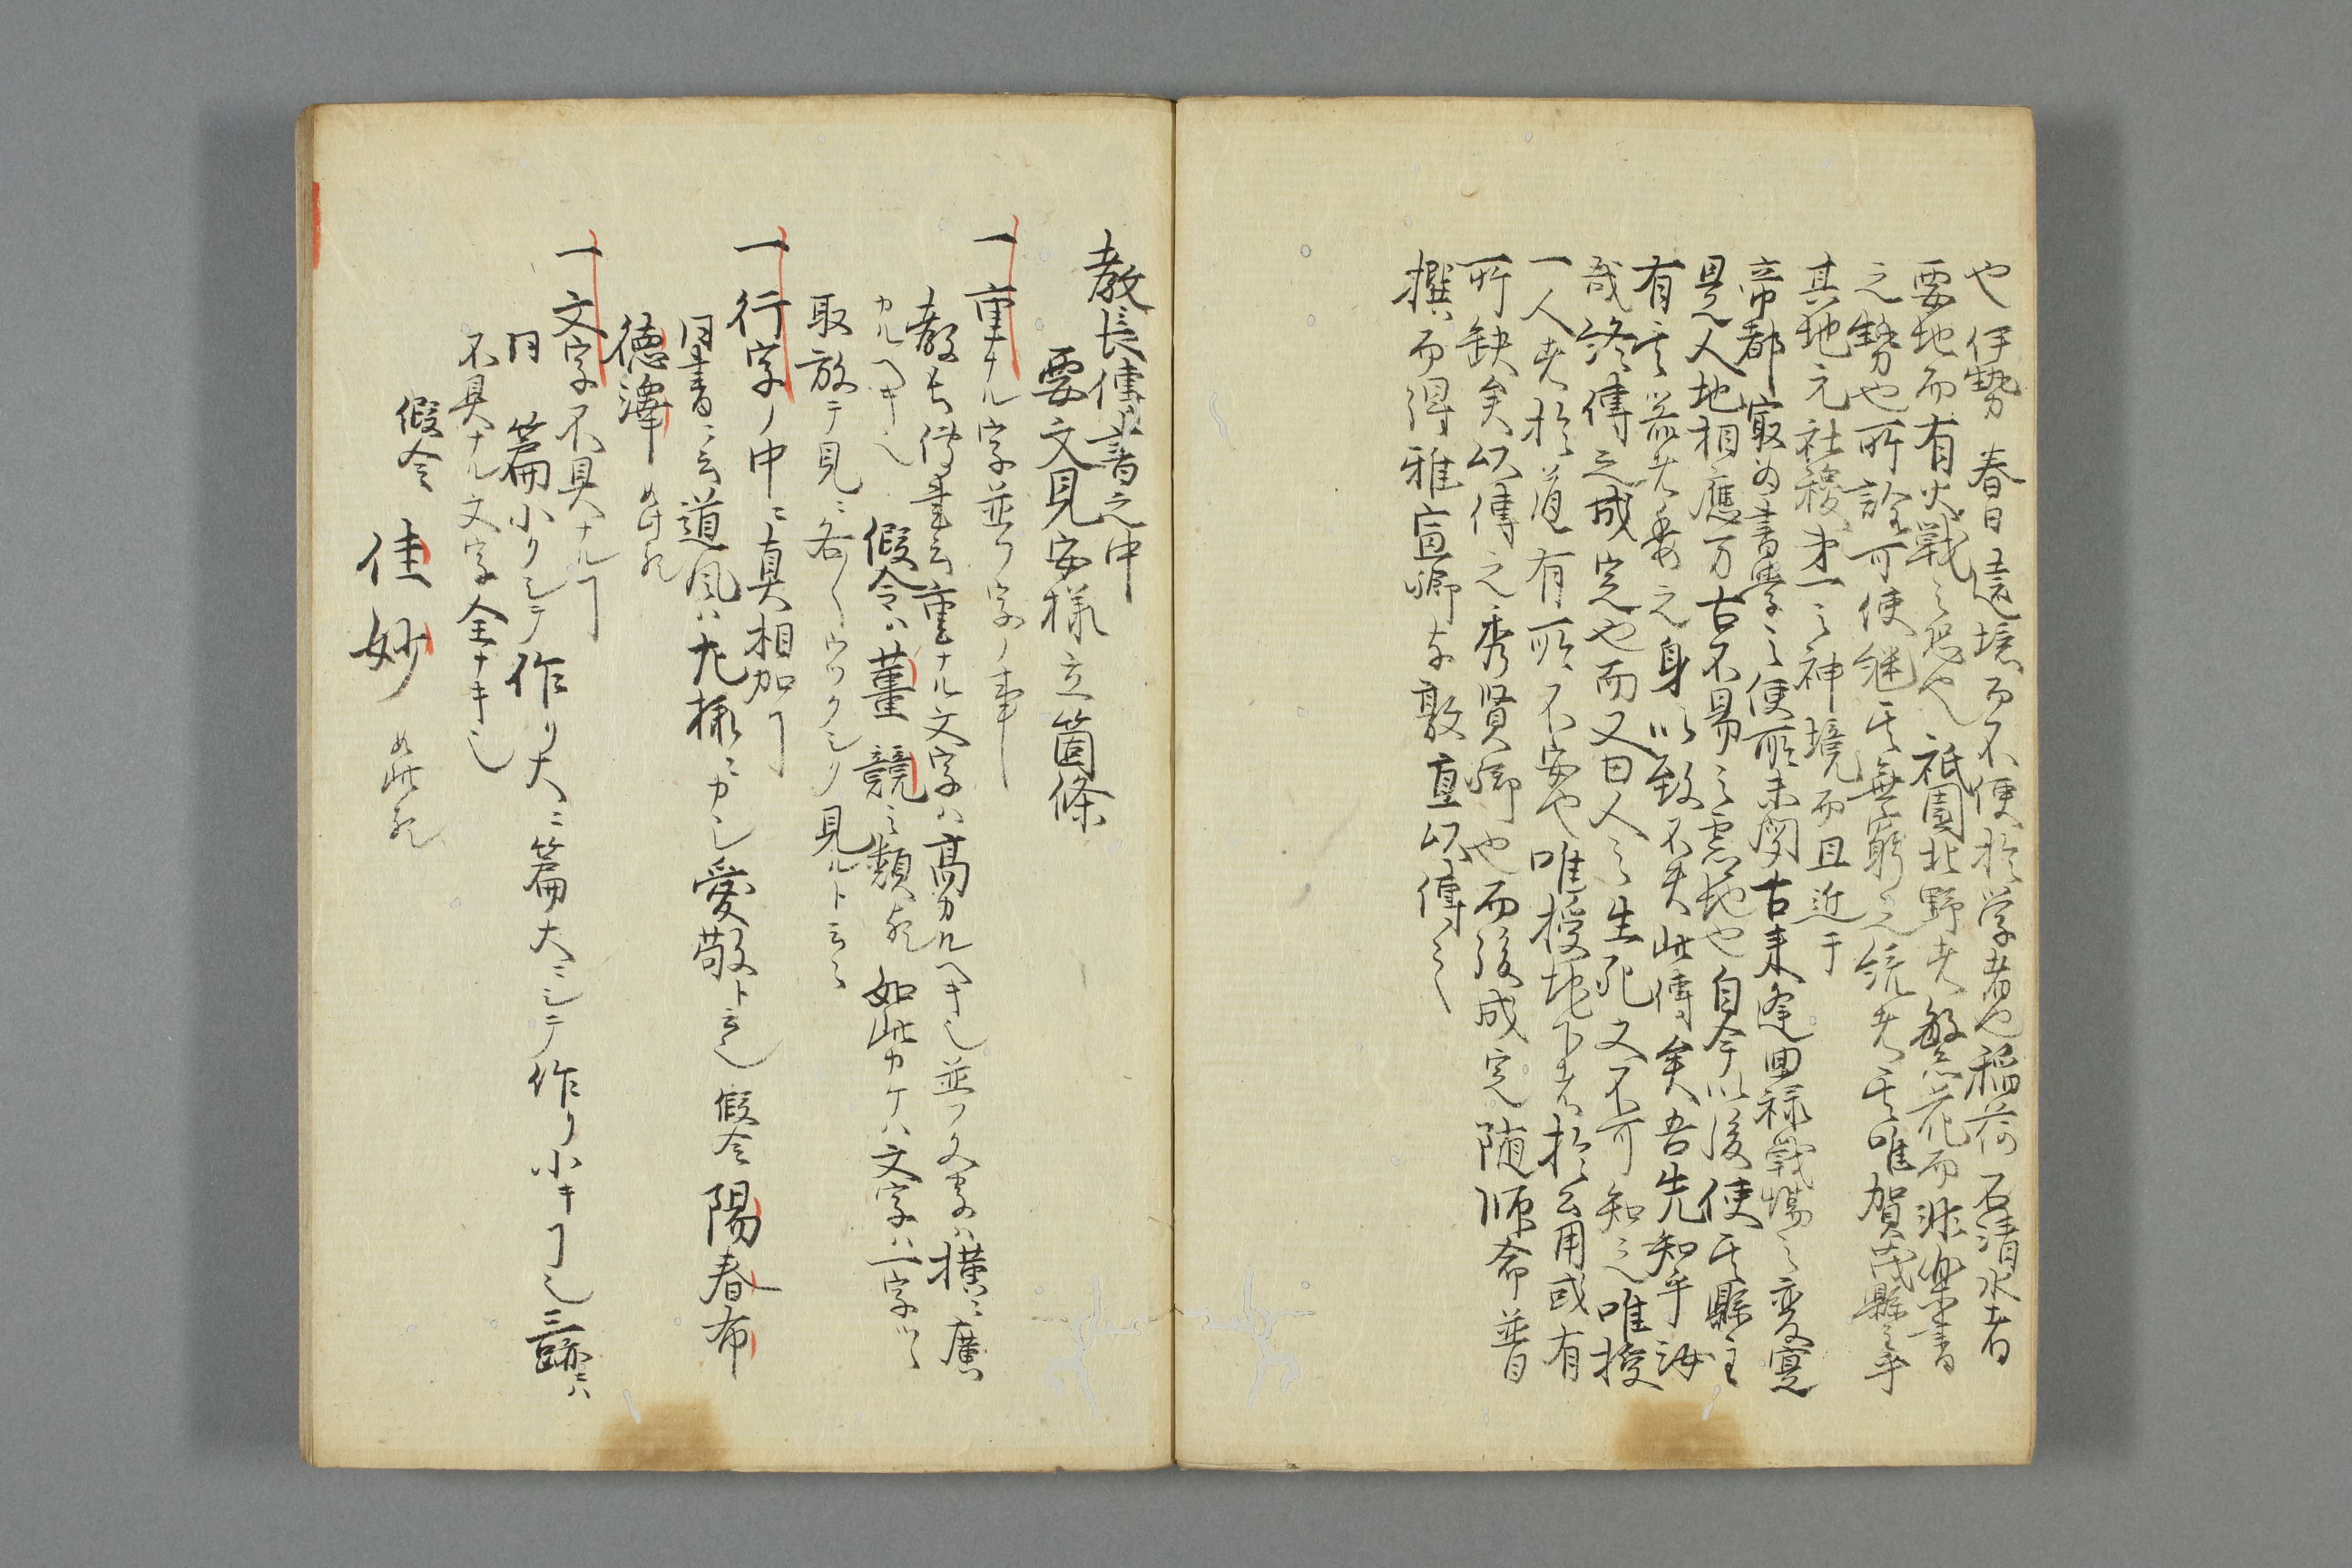 也伊勢春日遠境而不便於学者也稲荷石清水者
要地而有火戦之恐也祇園北野者繁花而非楽書
之勢也所詮可使継其無窮之統者其唯賀茂縣主乎
其地元社稷第一之神境而且近于
帝都最為書学之便所未聞古来逢回禄戦場之変寔
是人地相應万古不易之霊地也自今以後使其縣主
有其器者委之身以致不失此傳矣吾先知乎汝
哉終傳之成完也而又曰人之生死又不可知之唯授
一人者於道有所不安也唯授地下者於公用或有
所缺矣以傳之秀賢卿也而後成完随师命普
撰而得雅宣卿与敦直以傳之
教長傳書之中
要文見安様立箇條
一 重ナル字並フ字ノ事
教長傳書云重ナル文字ハ高カルヘキ也並フ文字ハ横ニ廣
カルヘキ也 假令ハ菫競之類歟如此カケハ文字ハ一字ツヽ
取放テ見ニ各〱ウツクシク見ルト云々
一 行字ノ中ニ真相加ヿ
同書ニ云道風ハ九様ニカ也愛敬ト云也假令陽春布
徳澤 如此歟
一 文字不具ナルヿ
同 篇小クシテ作リ大ニ篇大ニシテ作リ小キヿ也三跡ニハ
不具ナル文字全ナキ也
假令 佳 妙 如此歟